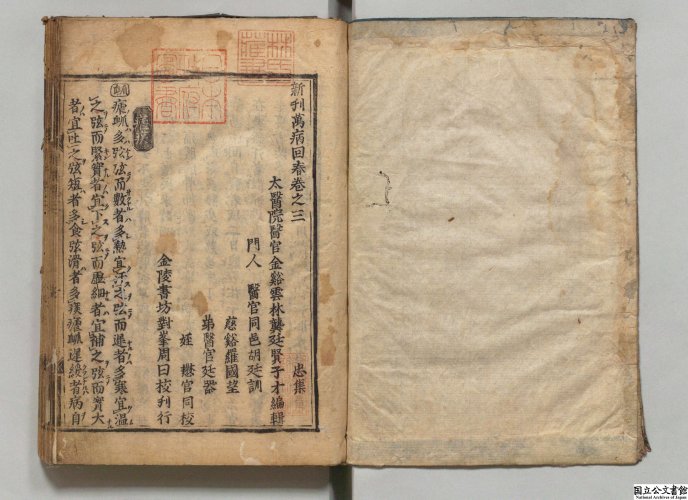 新刊萬病回春卷之三
忠集
太醫院醫官金谿雲林龔廷賢子才編輯
門人 醫官同邑胡廷訓
慈谿羅國望
弟醫官廷器
姪 懋官同校
金陵書坊對峯周曰校刊行
脉 瘧脉多弦弦而數者多熱宜汗之弦而遲者多寒宜温
之弦而緊實者宜下之弦而虛細者宜補之弦而實大
者宜吐之弦短者多食弦滑者多痰瘧脉遲緩者病自
林氏藏書
日本政府圖書
国立公文書館
National Archives of Japan